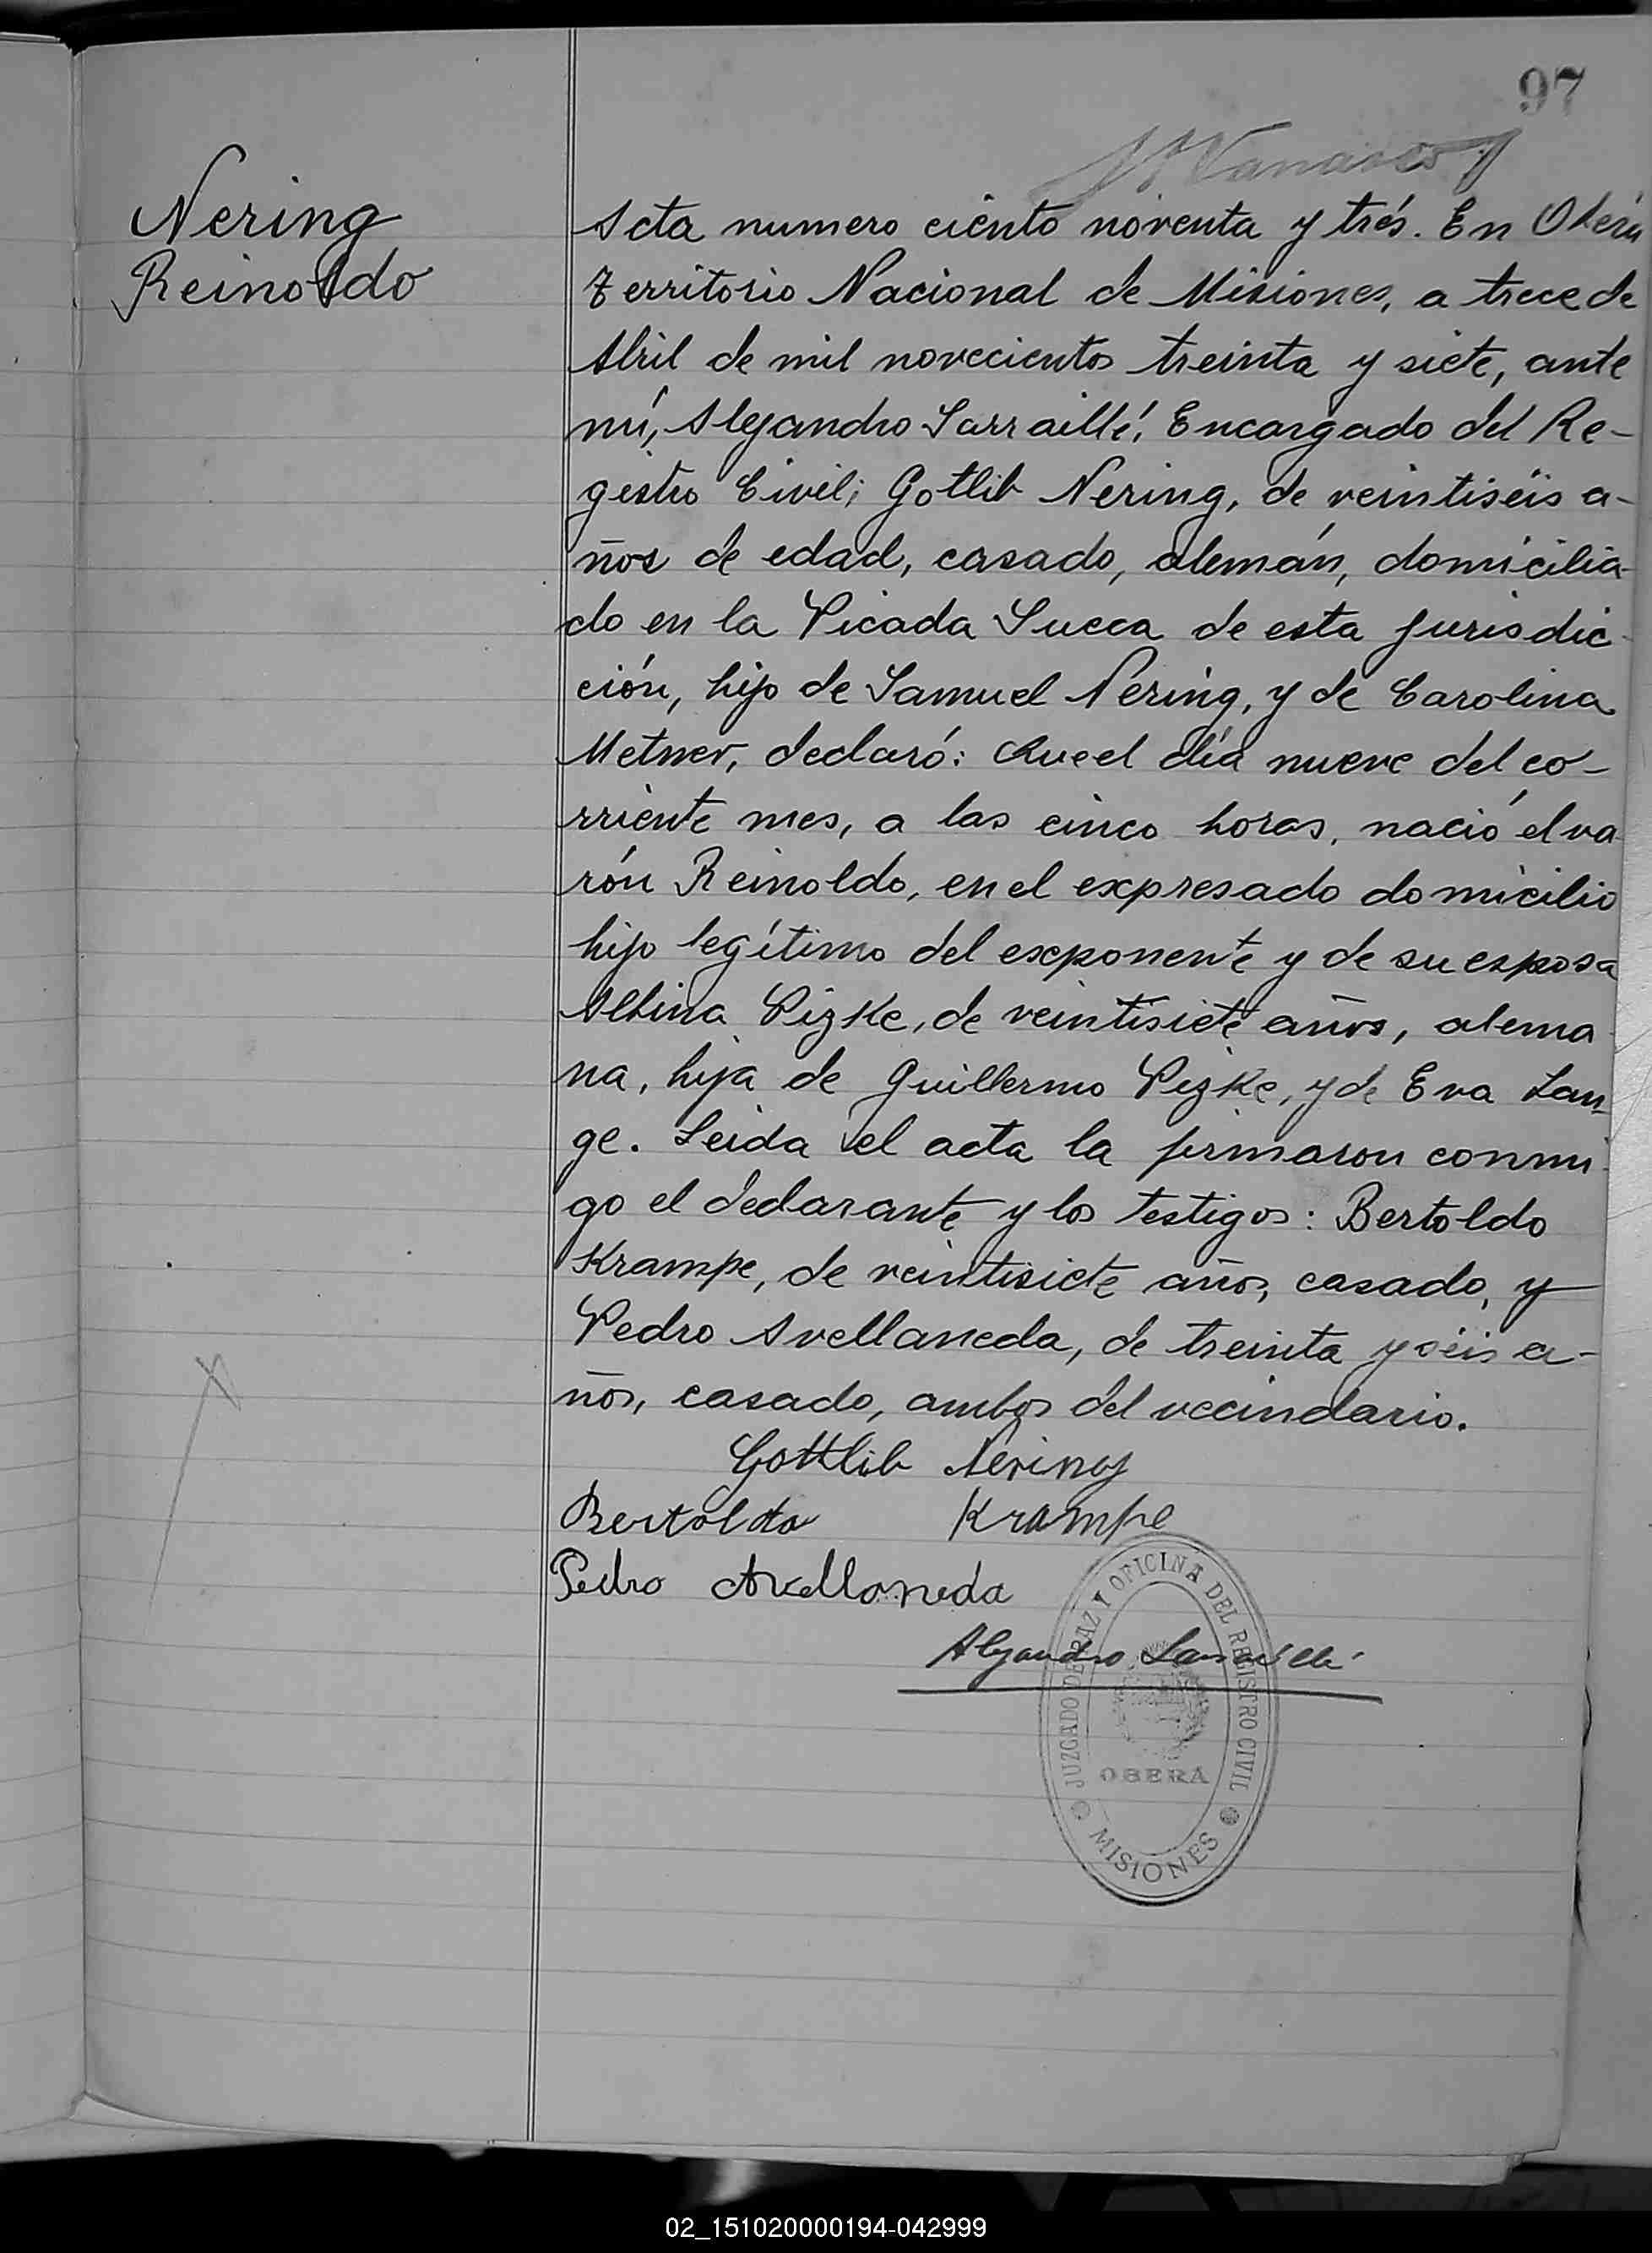 97
Nering
Reinoldo
Acta numero ciento noventa y trés. En Oberá
Territorio Nacional de Misiones, a trece de
Abril de mil novecientos treinta y siete, ante
mí, Alejandro Sarraillé, Encargado del Re-
gistro Civil; Gotlib Nering, de veintiséis a-
ños de edad, casado, alemán, domicilia-
do en la Picada Sueca de esta jurisdic-
ción, hijo de Samuel Nering, y de Carolina
Metner, declaró: Que el día nueve del co-
rriente mes, a las cinco horas, nació el va
rón Reinoldo, en el expresado domicilio
hijo legítimo del exponente y de su esposa
Albina Pizke, de veintisiete años, alema
na, hija de Guillermo Pizke, y de Eva Lan-
ge. Leida el acta la firmaron conmi-
go el declarante y los testigos: Bertoldo
Krampe, de veintisiete años, casado, y
Pedro Avellaneda, de treinta y séis a-
ños, casado, ambos del vecindario.
Gottlib Nering
Bertoldo Krampe
Pedro Avellaneda
Alejandro Sarraillé
JUZGADO DE PAZ Y OFICINA DEL REGISTRO CIVIL
OBERÁ
MISIONES
02_151020000194-042999